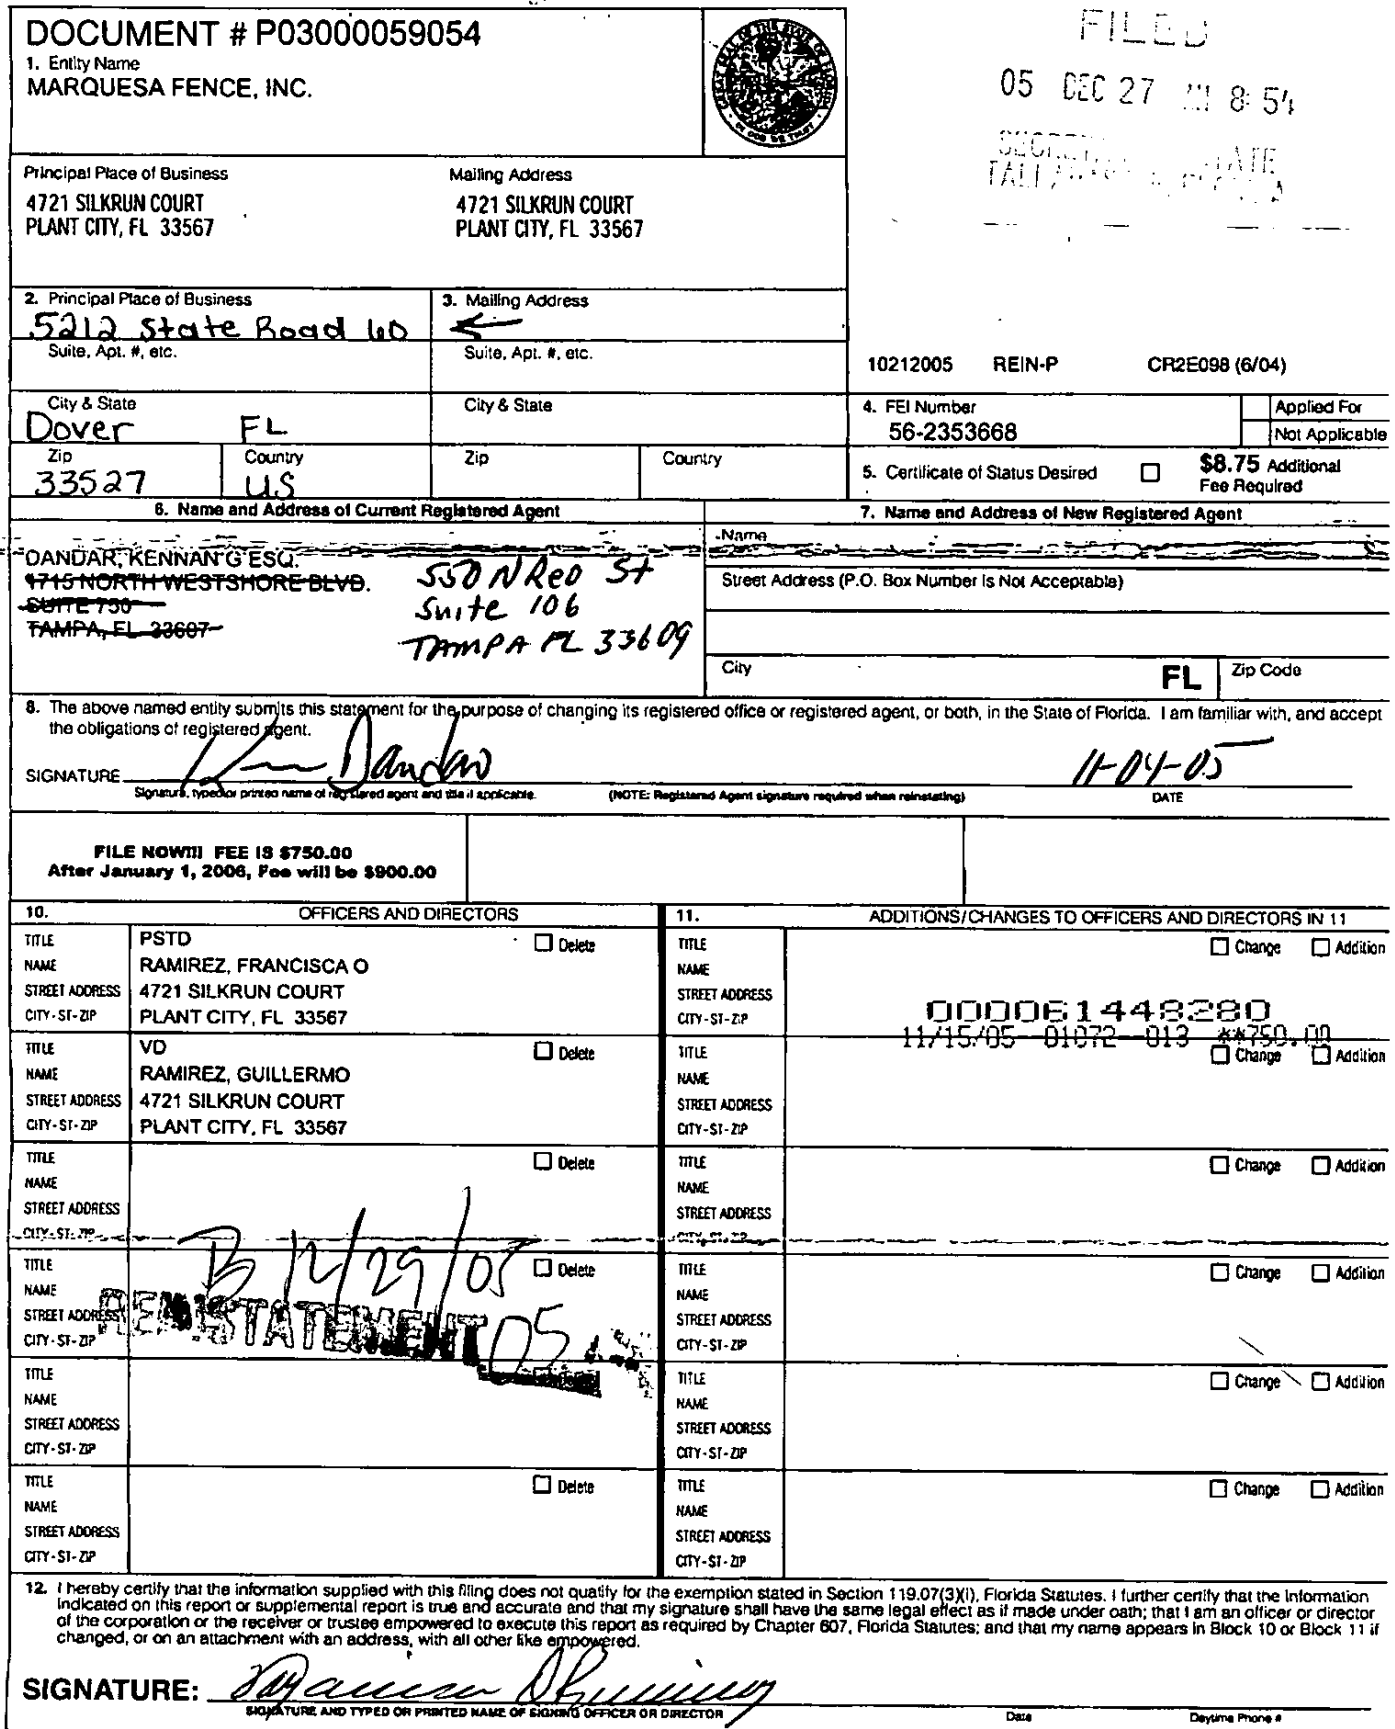 DOCUMENT # P03000059054
1. Entity Name
MARQUESA FENCE, INC.
FILED
05 DEC 27 8:54
Principal Place of Business
4721 SILKRUN COURT
PLANT CITY, FL 33567
Mailing Address
4721 SILKRUN COURT
PLANT CITY, FL 33567
2. Principal Place of Business
5212 State Road 60
3. Mailing Address
←
Suite, Apt. #, etc.
Suite, Apt. #, etc.
10212005 REIN-P CR2E098 (6/04)
City & State
Dover FL
City & State
4. FEI Number
56-2353668
Applied For
Not Applicable
Zip
33527
Country
US
Zip
Country
5. Certificate of Status Desired ☐ $8.75 Additional
Fee Required
6. Name and Address of Current Registered Agent
DANDAR, KENNAN G ESQ.
1715 NORTH WESTSHORE BLVD.
SUITE 750
TAMPA, FL 33607
550 N Reo St
Suite 106
TAMPA FL 33609
7. Name and Address of New Registered Agent
Name
Street Address (P.O. Box Number Is Not Acceptable)
City FL Zip Code
8. The above named entity submits this statement for the purpose of changing its registered office or registered agent, or both, in the State of Florida. I am familiar with, and accept
the obligations of registered agent.
SIGNATURE Ken Dandar 11-04-05
Signature, typed or printed name of registered agent and title if applicable. (NOTE: Registered Agent signature required when reinstating) DATE
FILE NOW!!! FEE IS $750.00
After January 1, 2006, Fee will be $900.00
10. OFFICERS AND DIRECTORS
TITLE PSTD ☐ Delete
NAME RAMIREZ, FRANCISCA O
STREET ADDRESS 4721 SILKRUN COURT
CITY-ST-ZIP PLANT CITY, FL 33567
TITLE VD ☐ Delete
NAME RAMIREZ, GUILLERMO
STREET ADDRESS 4721 SILKRUN COURT
CITY-ST-ZIP PLANT CITY, FL 33567
TITLE ☐ Delete
NAME
STREET ADDRESS
CITY-ST-ZIP
B 12/29/05
TITLE ☐ Delete
NAME
STREET ADDRESS
REINSTATEMENT 05
CITY-ST-ZIP
TITLE ☐ Delete
NAME
STREET ADDRESS
CITY-ST-ZIP
TITLE ☐ Delete
NAME
STREET ADDRESS
CITY-ST-ZIP
11. ADDITIONS/CHANGES TO OFFICERS AND DIRECTORS IN 11
TITLE ☐ Change ☐ Addition
NAME
STREET ADDRESS
CITY-ST-ZIP
000061448280
11/15/05--01072--013 **750.00
TITLE ☐ Change ☐ Addition
NAME
STREET ADDRESS
CITY-ST-ZIP
TITLE ☐ Change ☐ Addition
NAME
STREET ADDRESS
CITY-ST-ZIP
TITLE ☐ Change ☐ Addition
NAME
STREET ADDRESS
CITY-ST-ZIP
TITLE ☐ Change ☐ Addition
NAME
STREET ADDRESS
CITY-ST-ZIP
TITLE ☐ Change ☐ Addition
NAME
STREET ADDRESS
CITY-ST-ZIP
12. I hereby certify that the information supplied with this filing does not qualify for the exemption stated in Section 119.07(3)(i), Florida Statutes. I further certify that the information
indicated on this report or supplemental report is true and accurate and that my signature shall have the same legal effect as if made under oath; that I am an officer or director
of the corporation or the receiver or trustee empowered to execute this report as required by Chapter 607, Florida Statutes; and that my name appears in Block 10 or Block 11 if
changed, or on an attachment with an address, with all other like empowered.
SIGNATURE:
SIGNATURE AND TYPED OR PRINTED NAME OF SIGNING OFFICER OR DIRECTOR Date Daytime Phone #